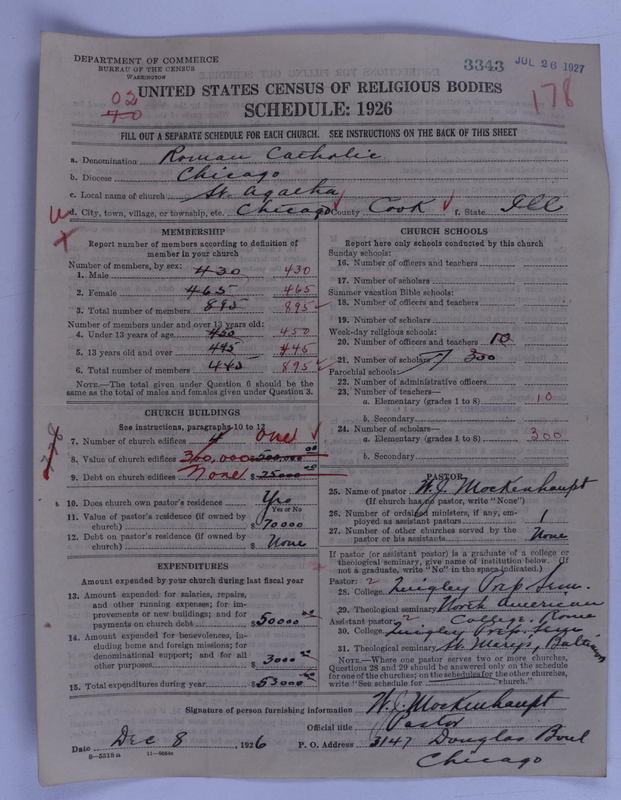 DEPARTMENT OF COMMERCE
BUREAU OF THE CENSUS
WASHINGTON
3343 JUL 26 1927
02
70
178
UNITED STATES CENSUS OF RELIGIOUS BODIES
SCHEDULE: 1926
FILL OUT A SEPARATE SCHEDULE FOR EACH CHURCH. SEE INSTRUCTIONS ON THE BACK OF THIS SHEET
a. Denomination Roman Catholic
b. Diocese Chicago
c. Local name of church St. Agatha
d. City, town, village, or township, etc. Chicago County Cook f. State Ill
MEMBERSHIP
Report number of members according to definition of
member in your church
Number of members, by sex:
1. Male 430 430
2. Female 465 465
3. Total number of members 895 895
Number of members under and over 13 years old:
4. Under 13 years of age 450 450
5. 13 years old and over 445 445
6. Total number of members 895
NOTE.—The total given under Question 6 should be the
same as the total of males and females given under Question 3.
CHURCH BUILDINGS
See instructions, paragraphs 10 to 12
7. Number of church edifices 4 one
8. Value of church edifices 300,000 $500,000 00
9. Debt on church edifices None $25000 00
10. Does church own pastor's residence Yes
Yes or No
11. Value of pastor's residence (if owned by
church) $70000
12. Debt on pastor's residence (if owned by
church) $ None
EXPENDITURES
Amount expended by your church during last fiscal year
13. Amount expended for salaries, repairs,
and other running expenses; for im-
provements or new buildings; and for
payments on church debt $50000 00
14. Amount expended for benevolences, in-
cluding home and foreign missions; for
denominational support; and for all
other purposes $ 3000 00
15. Total expenditures during year $53000 00
CHURCH SCHOOLS
Report here only schools conducted by this church
Sunday schools:
16. Number of officers and teachers
17. Number of scholars
Summer vacation Bible schools:
18. Number of officers and teachers
19. Number of scholars
Week-day religious schools:
20. Number of officers and teachers 10
21. Number of scholars 300
Parochial schools:
22. Number of administrative officers
23. Number of teachers—
a. Elementary (grades 1 to 8) 10
b. Secondary
24. Number of scholars—
a. Elementary (grades 1 to 8) 300
b. Secondary
PASTOR
25. Name of pastor W. J. Mockenhaupt
(If church has no pastor, write "None")
26. Number of ordained ministers, if any, em-
ployed as assistant pastors 1
27. Number of other churches served by the
pastor or his assistants None
If pastor (or assistant pastor) is a graduate of a college or
theological seminary, give name of institution below. (If
not a graduate, write "No" in the space indicated.)
Pastor: 2
28. College Quigley Prep. Sem.
29. Theological seminary North American
College, Rome
Assistant pastor: 2
30. College Quigley Prep. Sem
31. Theological seminary St. Marys, Baltimore
NOTE.—Where one pastor serves two or more churches,
Questions 28 and 29 should be answered only on the schedule
for one of the churches; on the schedules for the other churches,
write "See schedule for church."
Signature of person furnishing information W. J. Mockenhaupt
Official title Pastor
Date Dec 8, 1926 P. O. Address 3147 Douglas Boul
Chicago